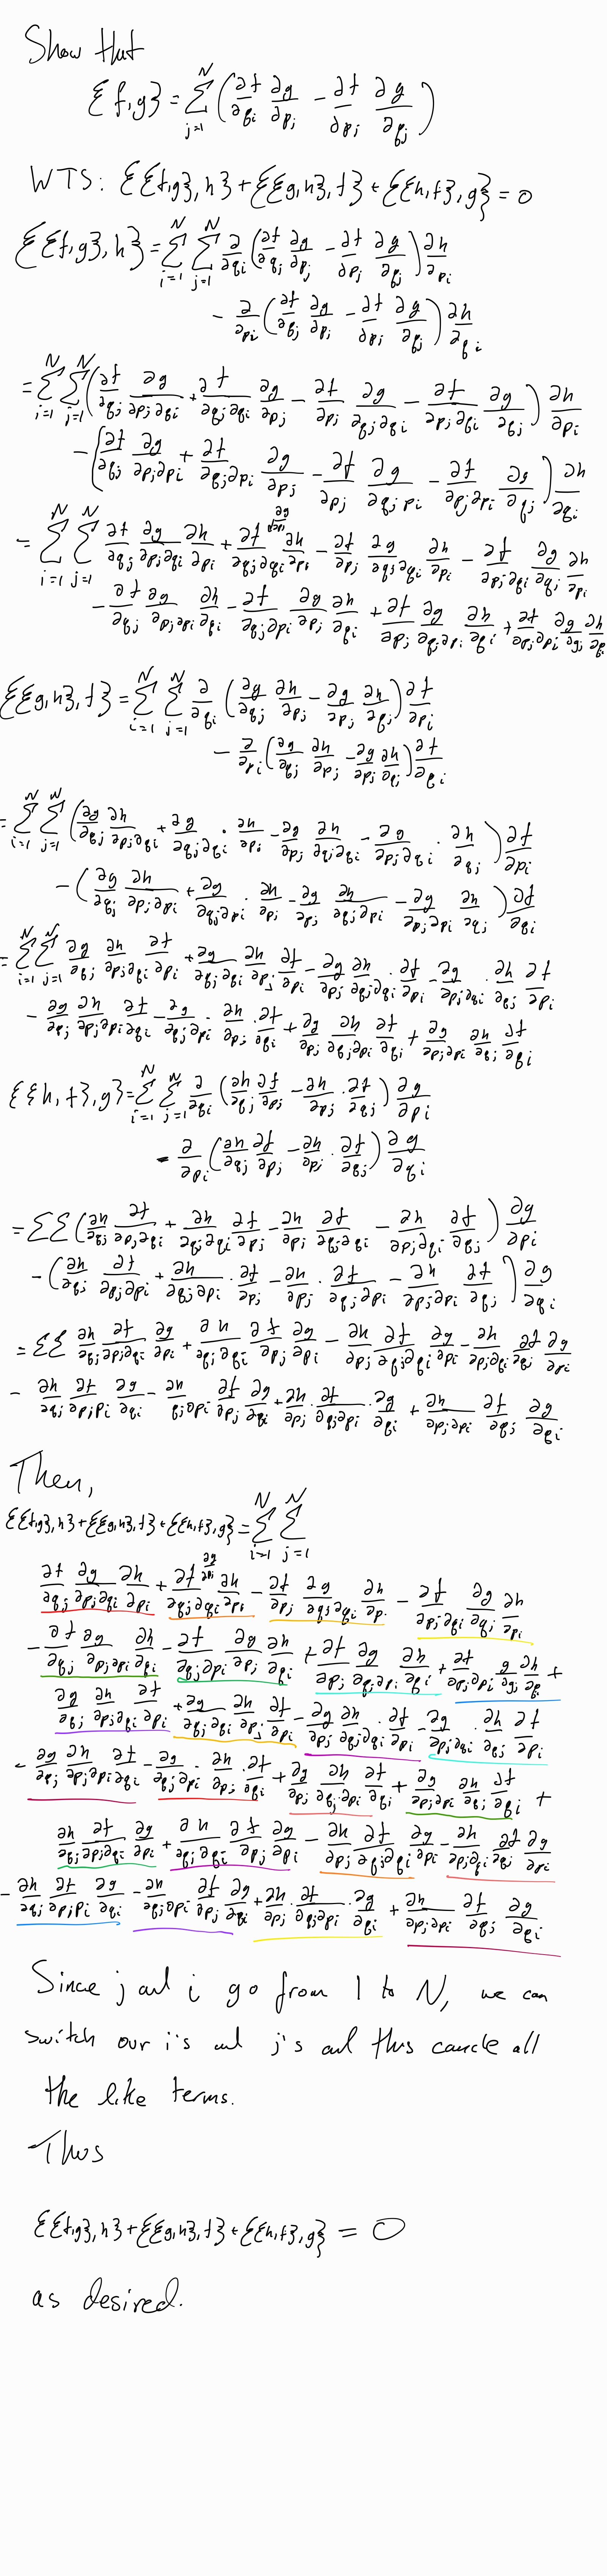 Show that
{f,g} = \sum_{j=1}^{N} (∂f/∂q_i ∂g/∂p_j - ∂f/∂p_j ∂g/∂q_j)
WTS: {{f,g},h} + {{g,h},f} + {{h,f},g} = 0
{{f,g},h} = \sum_{i=1}^{N} \sum_{j=1}^{N} ∂/∂q_i (∂f/∂q_j ∂g/∂p_j - ∂f/∂p_j ∂g/∂q_j) ∂h/∂p_i
- ∂/∂p_i (∂f/∂q_j ∂g/∂p_j - ∂f/∂p_j ∂g/∂q_j) ∂h/∂q_i
= \sum_{i=1}^{N} \sum_{j=1}^{N} (∂f/∂q_j ∂g/∂p_j∂q_i + ∂f/∂q_j∂q_i ∂g/∂p_j - ∂f/∂p_j ∂g/∂q_j∂q_i - ∂f/∂p_j∂q_i ∂g/∂q_j) ∂h/∂p_i
- (∂f/∂q_j ∂g/∂p_j∂p_i + ∂f/∂q_j∂p_i ∂g/∂p_j - ∂f/∂p_j ∂g/∂q_j p_i - ∂f/∂p_j∂p_i ∂g/∂q_j) ∂h/∂q_i
= \sum_{i=1}^{N} \sum_{j=1}^{N} ∂f/∂q_j ∂g/∂p_j∂q_i ∂h/∂p_i + ∂f/∂q_j∂q_i ∂g/∂p_j ∂h/∂p_i - ∂f/∂p_j ∂g/∂q_j∂q_i ∂h/∂p_i - ∂f/∂p_j∂q_i ∂g/∂q_j ∂h/∂p_i
- ∂f/∂q_j ∂g/∂p_j∂p_i ∂h/∂q_i - ∂f/∂q_j∂p_i ∂g/∂p_j ∂h/∂q_i + ∂f/∂p_j ∂g/∂q_j∂p_i ∂h/∂q_i + ∂f/∂p_j∂p_i ∂g/∂q_j ∂h/∂q_i
{{g,h},f} = \sum_{i=1}^{N} \sum_{j=1}^{N} ∂/∂q_i (∂g/∂q_j ∂h/∂p_j - ∂g/∂p_j ∂h/∂q_j) ∂f/∂p_i
- ∂/∂p_i (∂g/∂q_j ∂h/∂p_j - ∂g/∂p_j ∂h/∂q_j) ∂f/∂q_i
= \sum_{i=1}^{N} \sum_{j=1}^{N} (∂g/∂q_j ∂h/∂p_j∂q_i + ∂g/∂q_j∂q_i · ∂h/∂p_j - ∂g/∂p_j ∂h/∂q_j∂q_i - ∂g/∂p_j∂q_i · ∂h/∂q_j) ∂f/∂p_i
- (∂g/∂q_j ∂h/∂p_j∂p_i + ∂g/∂q_j∂p_i · ∂h/∂p_j - ∂g/∂p_j ∂h/∂q_j∂p_i - ∂g/∂p_j∂p_i ∂h/∂q_j) ∂f/∂q_i
= \sum_{i=1}^{N} \sum_{j=1}^{N} ∂g/∂q_j ∂h/∂p_j∂q_i ∂f/∂p_i + ∂g/∂q_j∂q_i ∂h/∂p_j ∂f/∂p_i - ∂g/∂p_j ∂h/∂q_j∂q_i · ∂f/∂p_i - ∂g/∂p_j∂q_i · ∂h/∂q_j ∂f/∂p_i
- ∂g/∂q_j ∂h/∂p_j∂p_i ∂f/∂q_i - ∂g/∂q_j∂p_i · ∂h/∂p_j · ∂f/∂q_i + ∂g/∂p_j ∂h/∂q_j∂p_i ∂f/∂q_i + ∂g/∂p_j∂p_i ∂h/∂q_j ∂f/∂q_i
{{h,f},g} = \sum_{i=1}^{N} \sum_{j=1}^{N} ∂/∂q_i (∂h/∂q_j ∂f/∂p_j - ∂h/∂p_j · ∂f/∂q_j) ∂g/∂p_i
- ∂/∂p_i (∂h/∂q_j ∂f/∂p_j - ∂h/∂p_j · ∂f/∂q_j) ∂g/∂q_i
= ΣΣ (∂h/∂q_j ∂f/∂p_j∂q_i + ∂h/∂q_j∂q_i ∂f/∂p_j - ∂h/∂p_j ∂f/∂q_j∂q_i - ∂h/∂p_j∂q_i · ∂f/∂q_j) ∂g/∂p_i
- (∂h/∂q_j ∂f/∂p_j∂p_i + ∂h/∂q_j∂p_i · ∂f/∂p_j - ∂h/∂p_j · ∂f/∂q_j∂p_i - ∂h/∂p_j∂p_i ∂f/∂q_j) ∂g/∂q_i
= ΣΣ ∂h/∂q_j ∂f/∂p_j∂q_i ∂g/∂p_i + ∂h/∂q_j∂q_i ∂f/∂p_j ∂g/∂p_i - ∂h/∂p_j ∂f/∂q_j∂q_i ∂g/∂p_i - ∂h/∂p_j∂q_i ∂f/∂q_j ∂g/∂p_i
- ∂h/∂q_j ∂f/∂p_j p_i ∂g/∂q_i - ∂h/q_j∂p_i ∂f/∂p_j ∂g/∂q_i + ∂h/∂p_j · ∂f/∂q_j∂p_i · ∂g/∂q_i + ∂h/∂p_j∂p_i ∂f/∂q_j ∂g/∂q_i
Then,
{{f,g},h} + {{g,h},f} + {{h,f},g} = \sum_{i=1}^{N} \sum_{j=1}^{N}
∂f/∂q_j ∂g/∂p_j∂q_i ∂h/∂p_i + ∂f/∂q_j∂q_i ∂g/∂p_j ∂h/∂p_i - ∂f/∂p_j ∂g/∂q_j∂q_i ∂h/∂p_i - ∂f/∂p_j∂q_i ∂g/∂q_j ∂h/∂p_i
- ∂f/∂q_j ∂g/∂p_j∂p_i ∂h/∂q_i - ∂f/∂q_j∂p_i ∂g/∂p_j ∂h/∂q_i + ∂f/∂p_j ∂g/∂q_j∂p_i ∂h/∂q_i + ∂f/∂p_j∂p_i g/∂q_j ∂h/∂q_i +
∂g/∂q_j ∂h/∂p_j∂q_i ∂f/∂p_i + ∂g/∂q_j∂q_i ∂h/∂p_j ∂f/∂p_i - ∂g/∂p_j ∂h/∂q_j∂q_i · ∂f/∂p_i - ∂g/∂p_j∂q_i · ∂h/∂q_j ∂f/∂p_i
- ∂g/∂q_j ∂h/∂p_j∂p_i ∂f/∂q_i - ∂g/∂q_j∂p_i · ∂h/∂p_j · ∂f/∂q_i + ∂g/∂p_j ∂h/∂q_j·∂p_i ∂f/∂q_i + ∂g/∂p_j∂p_i ∂h/∂q_j ∂f/∂q_i +
∂h/∂q_j ∂f/∂p_j∂q_i ∂g/∂p_i + ∂h/∂q_j∂q_i ∂f/∂p_j ∂g/∂p_i - ∂h/∂p_j ∂f/∂q_j∂q_i ∂g/∂p_i - ∂h/∂p_j∂q_i ∂f/∂q_j ∂g/∂p_i
- ∂h/∂q_j ∂f/∂p_j p_i ∂g/∂q_i - ∂h/q_j∂p_i ∂f/∂p_j ∂g/∂q_i + ∂h/∂p_j · ∂f/∂q_j∂p_i · ∂g/∂q_i + ∂h/∂p_j∂p_i ∂f/∂q_j ∂g/∂q_i
Since j and i go from 1 to N, we can
switch our i's and j's and thus cancle all
the like terms.
Thus
{{f,g},h} + {{g,h},f} + {{h,f},g} = 0
as desired.